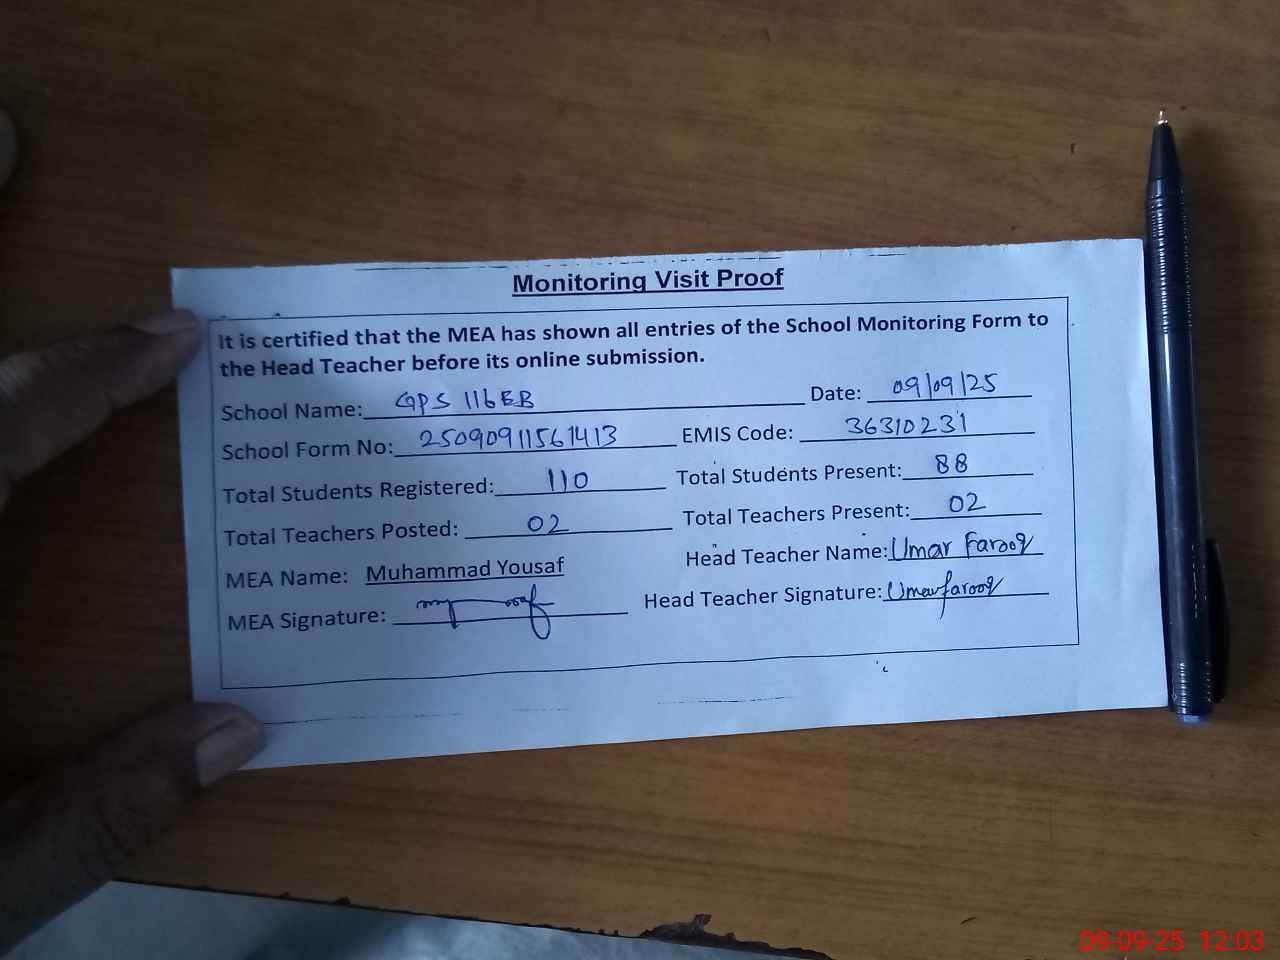 Monitoring Visit Proof
It is certified that the MEA has shown all entries of the School Monitoring Form to
the Head Teacher before its online submission.
School Name: GPS 116EB Date: 09/09/25
School Form No: 25090911561413 EMIS Code: 36310231
Total Students Registered: 110 Total Students Present: 88
Total Teachers Posted: 02 Total Teachers Present: 02
MEA Name: Muhammad Yousaf Head Teacher Name: Umar Farooq
MEA Signature: Head Teacher Signature: Umarfarooq
09-09-25 12:03